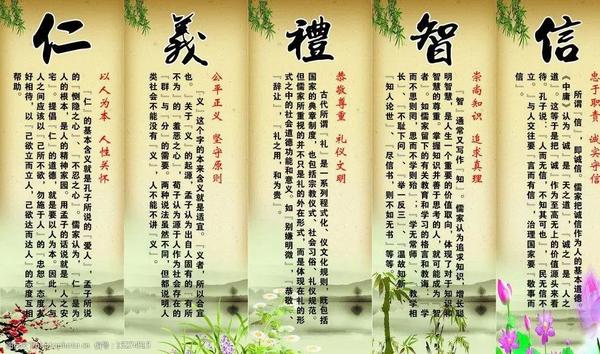 仁
以人为本 人性关怀
“仁”的基本含义就是孔子所说的“爱人”，孟子所说
的“恻隐之心”、“不忍之心”。儒家认为，“仁”是
人的根本，是人的精神家园。用孟子的话说就是“人之安
宅”。提倡“仁”的道德，就是要以人为本。因此，人与
人之间应该以“己所不欲，勿施于人”的“忠恕”态度友
好相待，以“己欲立而立人，己欲达而达人”的态度互相
帮助。
義
公平正义 坚守原则
“义”这个字的本来含义就是适宜。义者，所以合宜
也。关于“义”的起源，孟子认为出自人固有的“有所
不为”的“羞恶之心”，荀子认为源于人作为社会存在的
“群”与“分”的需要。两种说法虽然不同，但都说明人
类社会不能没有“义”，人不能不讲“义”。
禮
恭敬尊重 礼仪文明
古代所谓“礼”是一系列程式化、仪文化规则，既包括
国家的典章制度，也包括宗教仪式、社会习俗、礼仪规范
但儒家所重视的并不只是礼的外在形式，而是体现在礼的形
式之中的社会道德功能和意义。如“别嫌明微”、“恭敬
“辞让”，“礼之用，和为贵”。
智
崇尚知识 追求真理
“智”通常又写作“知”。儒家认为追求知识、增长聪
明智慧，是人生一个重要的价值取向，体现了对于知识和
智慧的尊重。掌握知识并善于思考的人，就可能成为“智
者”。如儒家留下的有关教育和学习的格言和教诲，“学
而不思则罔，思而不学则殆”；“学无常师”、“教学相
长”、“不耻下问”、“举一反三”、“温故知新”、
“知人论世”、“尽信书，则不如无书”等等
信
忠于职责 诚实守信
所谓“信”，即诚信。儒家把诚信作为人的基本道德，
《中庸》认为“诚”是“天之道”，“诚之”是“人之
道”。这等于是把“诚”作为至高无上的价值源头来看
待。孔子说，“人而无信，不知其可也”，“民无信不
立”。与朋友交往要“言而有信”，治理国家要“敬事而
信”。